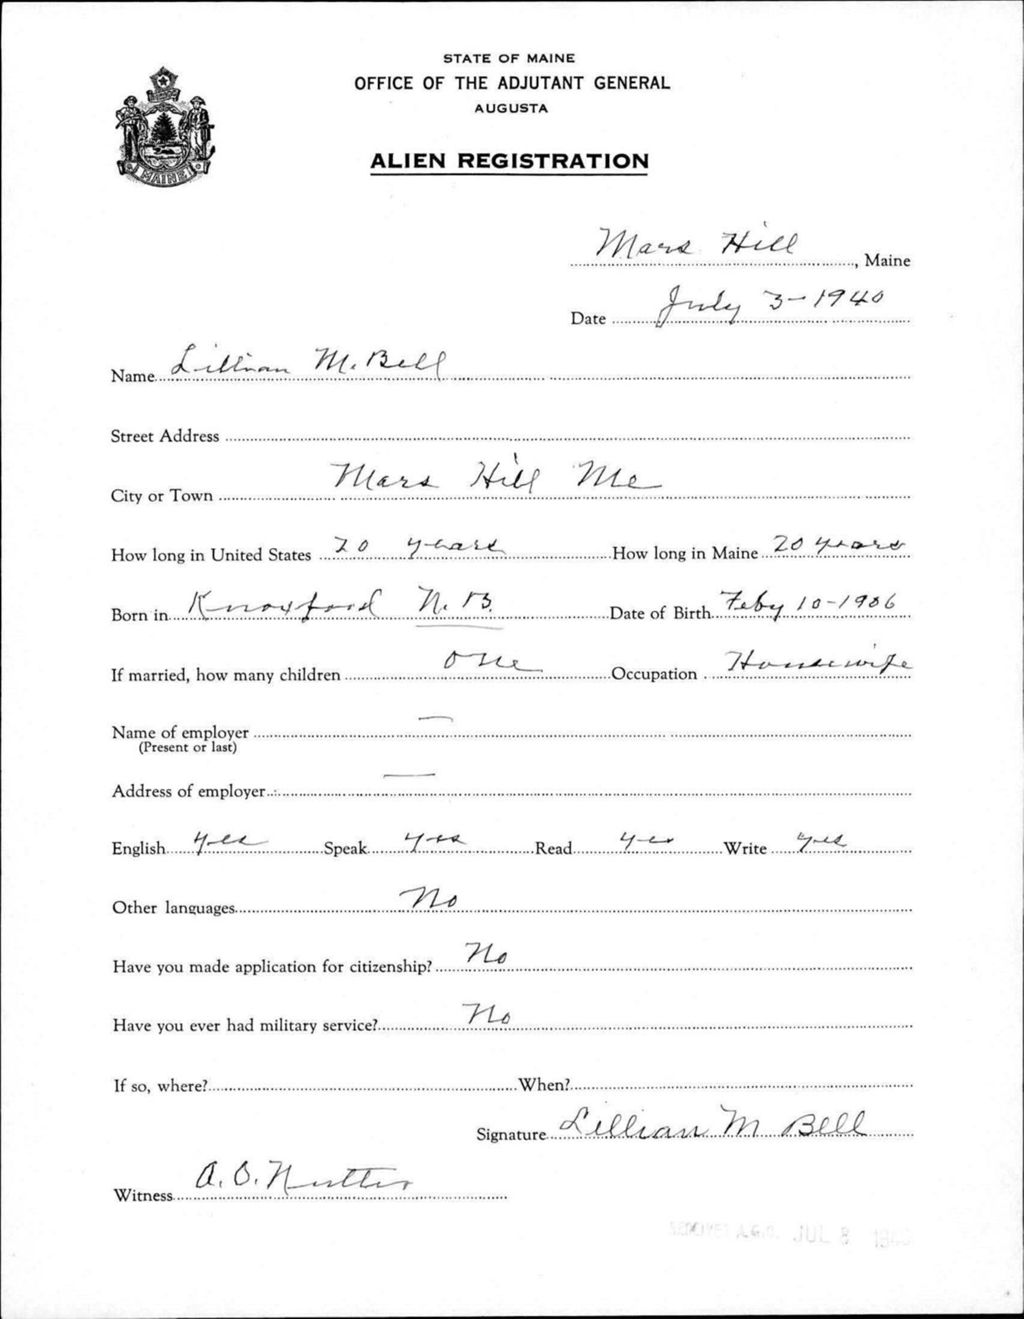 STATE OF MAINE
OFFICE OF THE ADJUTANT GENERAL
AUGUSTA
ALIEN REGISTRATION
MAINE
Mars Hill, Maine
Date July 3-1940
Name Lillian M. Bell
Street Address
City or Town Mars Hill Me
How long in United States 20 years How long in Maine 20 years
Born in Knoxford N.B. Date of Birth Feby 10-1906
If married, how many children one Occupation Housewife
Name of employer —
(Present or last)
Address of employer —
English yes Speak yes Read yes Write yes
Other languages No
Have you made application for citizenship? No
Have you ever had military service? No
If so, where? When?
Signature Lillian M Bell
Witness A. O. Nutter
A.G.O. JUL 8 1940